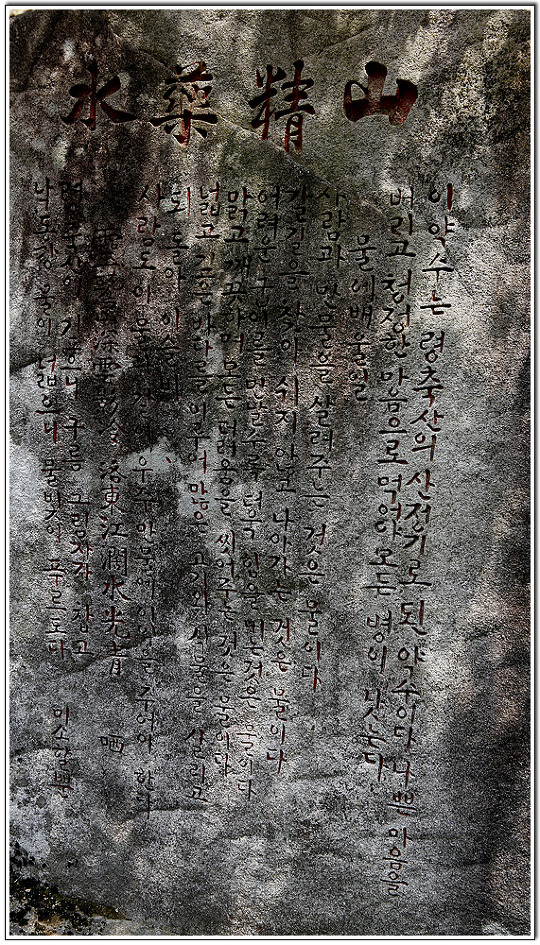 山精藥水
이 약수는 령축산의 산정기로 된 약수이다 나쁜 마음을
버리고 청정한 마음으로 먹어야 모든 병이 낫는다
물에 배울 일
사람과 만물을 살려주는 것은 물이다
갈길을 찾아 쉬지 않고 나아가는 것은 물이다
어려운 구비를 만날수록 더욱 힘을 내는 것은 물이다
맑고 깨끗하며 모든 더러움을 씻어주는 것은 물이다
넓고 깊은 바다를 이루어 많은 고기와 식물을 살리고
되돌아 이슬비
사람도 이 물과 같이 우주 만물에 이익을 주어야 한다
靈鷲山深雲影冷 洛東江濶水光靑 哂
영축산이 깊으니 구름 그림자가 차고
낙동강 물이 넓으니 물빛이 푸르도다 미소할 뿐